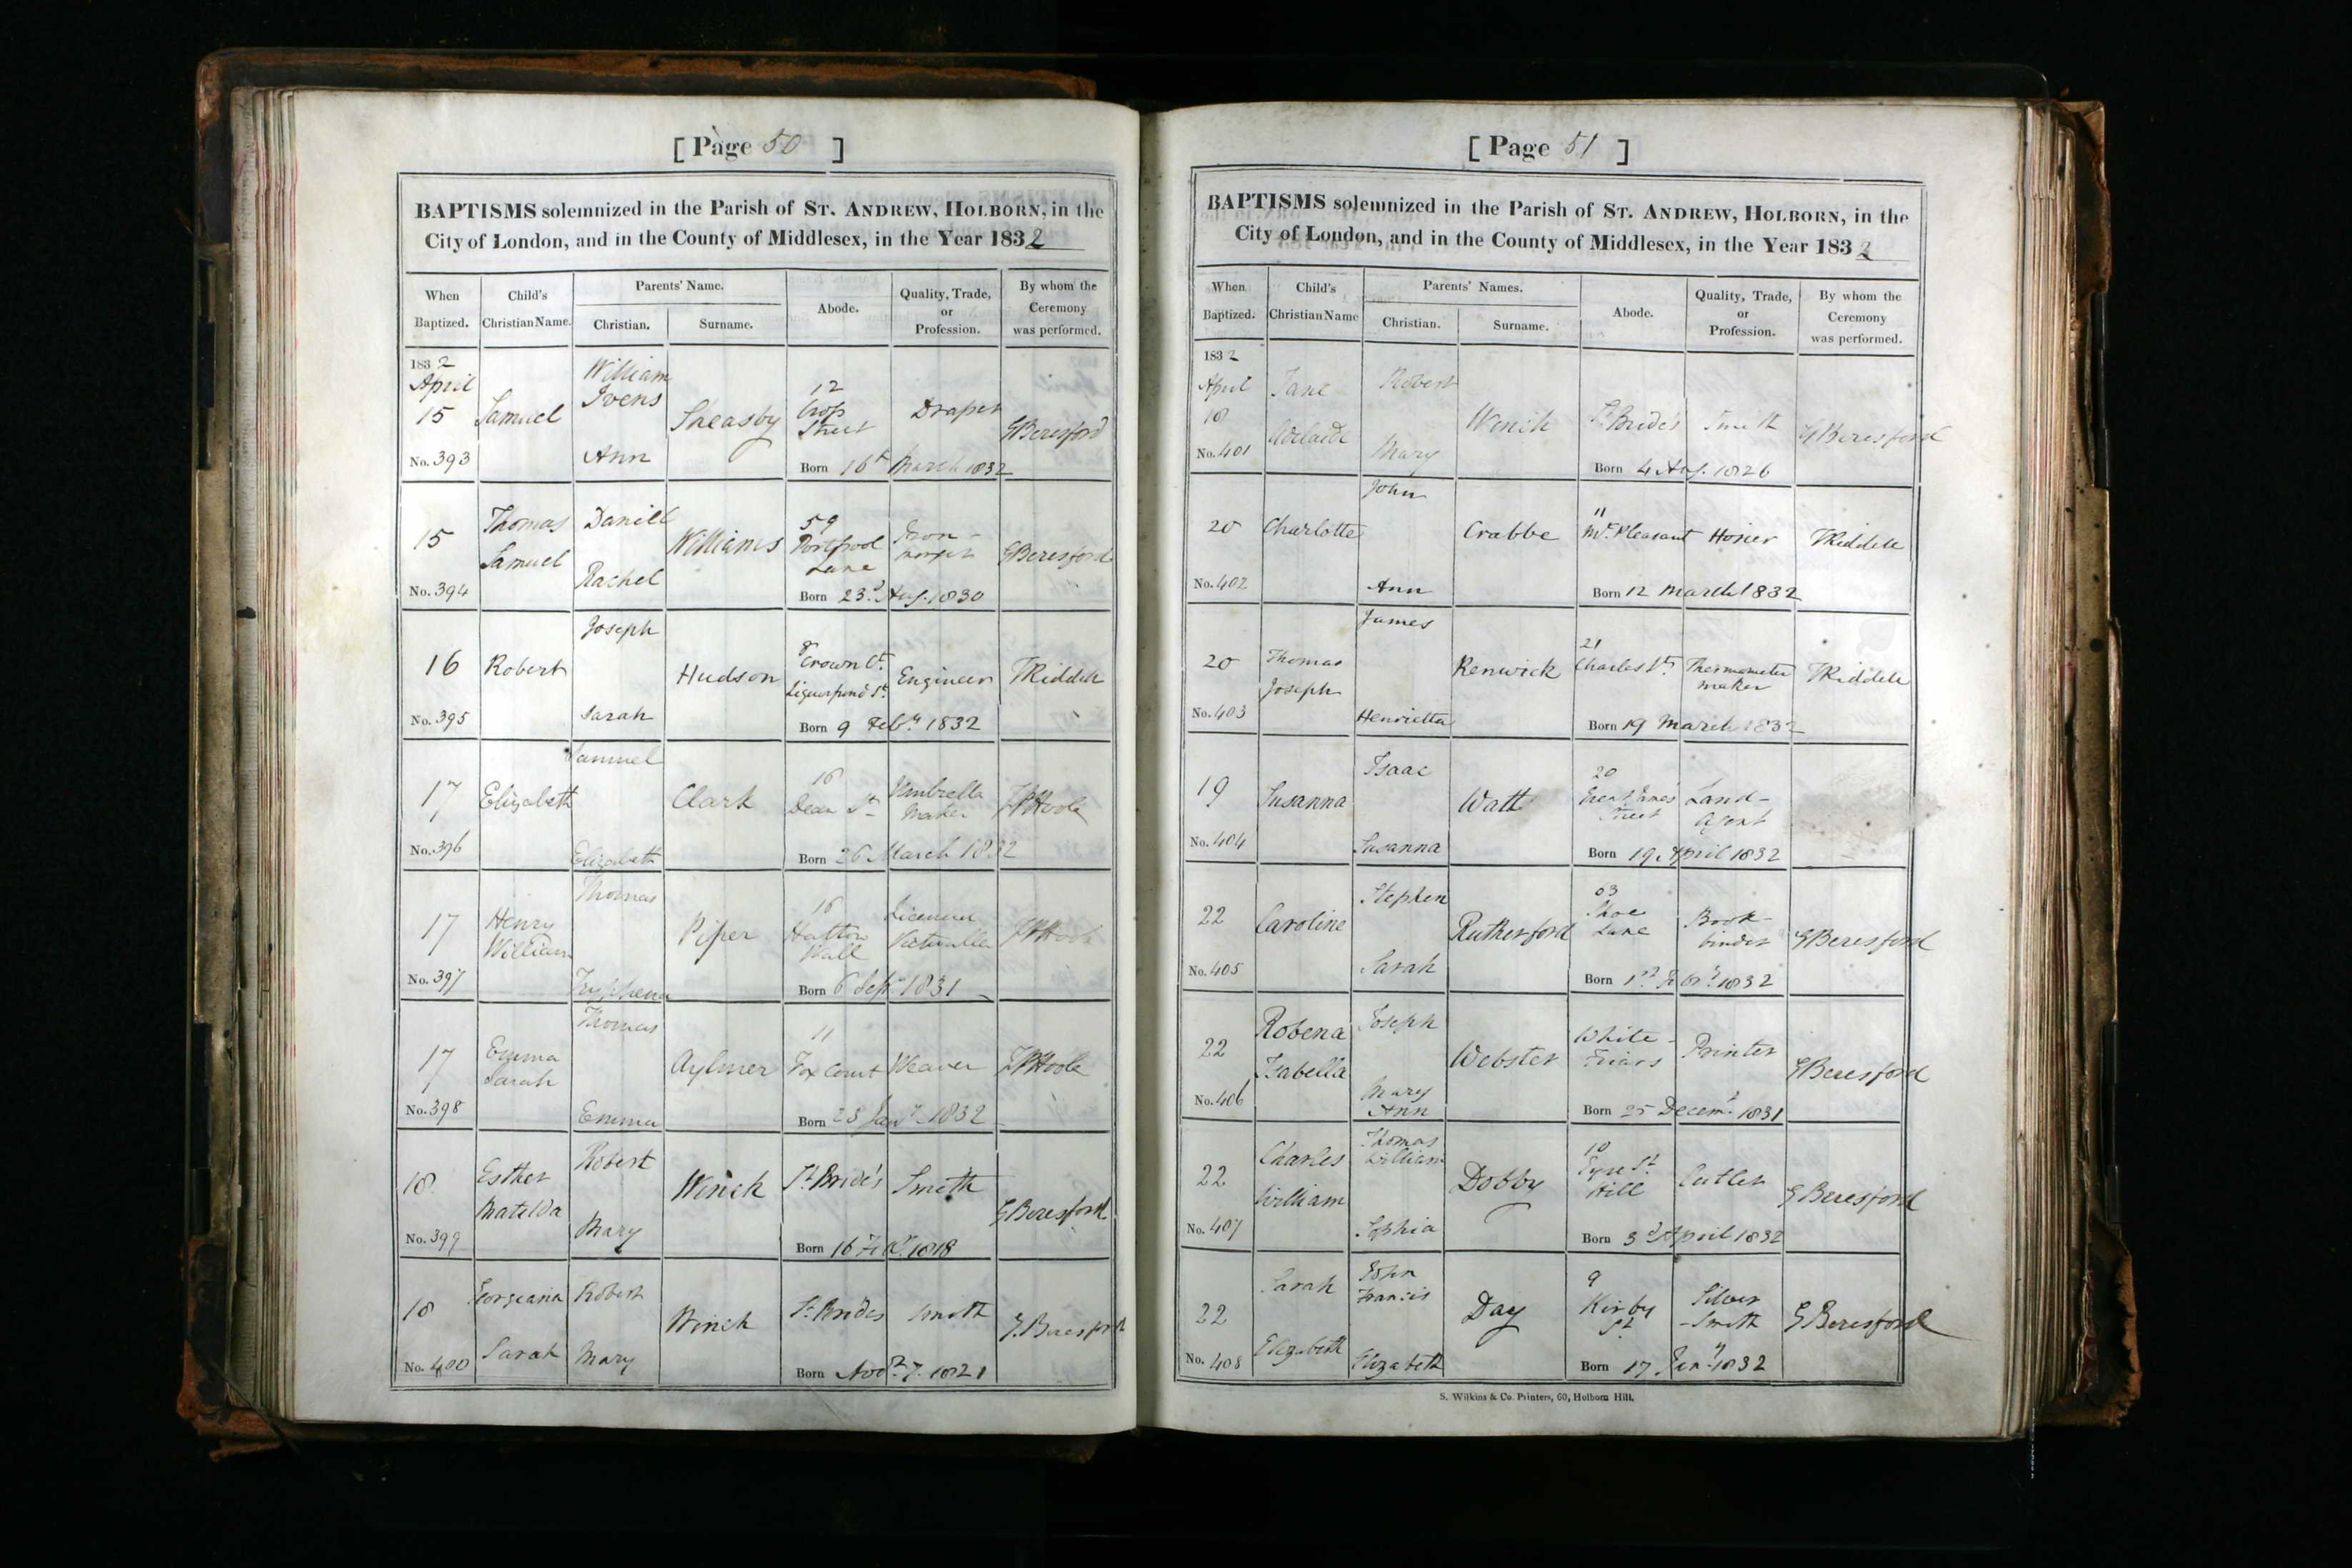 [ Page 50 ]
BAPTISMS solemnized in the Parish of ST. ANDREW, HOLBORN, in the
City of London, and in the County of Middlesex, in the Year 1832
When Baptized. Child's Christian Name. Parents' Name. Christian. Surname. Abode. Quality, Trade, or Profession. By whom the Ceremony was performed.
1832
April
15 Samuel William Ivens Sheasby 12 Cross Street Draper GBeresford
No. 393 Ann Born 16th March 1832
15 Thomas Samuel Daniel Williams 59 Portpool Lane Iron-monger GBeresford
No. 394 Rachel Born 23d Aug. 1830
16 Robert Joseph Hudson 8 Crown Ct. Liquorpond St. Engineer TRiddell
No. 395 Sarah Born 9 Feby 1832
17 Elizabeth Samuel Clark 16 Dean St. Umbrella Maker
No. 396 Elizabeth Born 26 March 1832
17 Henry William Thomas Piper 16 Hatton Wall Licensed Victualler
No. 397 Tryphena Born 6 Sepr 1831
17 Emma Sarah Thomas Aylmer 11 Fox Court Weaver
No. 398 Emma Born 23 Jany 1832
18 Esther Matilda Robert Winch St. Bride's Smith GBeresford
No. 399 Mary Born 16 Feby. 1818
18 Georgeana Sarah Robert Winch St. Brides Smith G.Beresford
No. 400 Mary Born Novr. 7. 1821
[ Page 51 ]
BAPTISMS solemnized in the Parish of ST. ANDREW, HOLBORN, in the
City of London, and in the County of Middlesex, in the Year 1832
When Baptized. Child's Christian Name Parents' Names. Christian. Surname. Abode. Quality, Trade, or Profession. By whom the Ceremony was performed.
1832
April
18 Jane Adelaide Robert Winch St. Bride's Smith GBeresford
No. 401 Mary Born 4 Aug. 1826
20 Charlotte John Crabbe 11 Mt. Pleasant Hosier TRiddell
No. 402 Ann Born 12 March 1832
20 Thomas Joseph James Renwick 21 Charles St. Thermometer maker TRiddell
No. 403 Henrietta Born 19 March 1832
19 Susanna Isaac Watt 20 Great James Street Land-Agent
No. 404 Susanna Born 19 April 1832
22 Caroline Stephen Rutherford 03 Shoe Lane Book-binder GBeresford
No. 405 Sarah Born 1832
22 Robena Isabella Joseph Webster White-Friars Printer GBeresford
No. 406 Mary Ann Born 25 Decemr. 1831
22 Charles William Thomas William Dobby 10 Eyre St. Hill Cutler GBeresford
No. 407 Sophia Born 3d April 1832
22 Sarah Elizabeth John Francis Day 9 Kirby St. Silver-Smith GBeresford
No. 408 Elizabeth Born 17. Jany 1832
S. Wilkins & Co. Printers, 60, Holborn Hill.